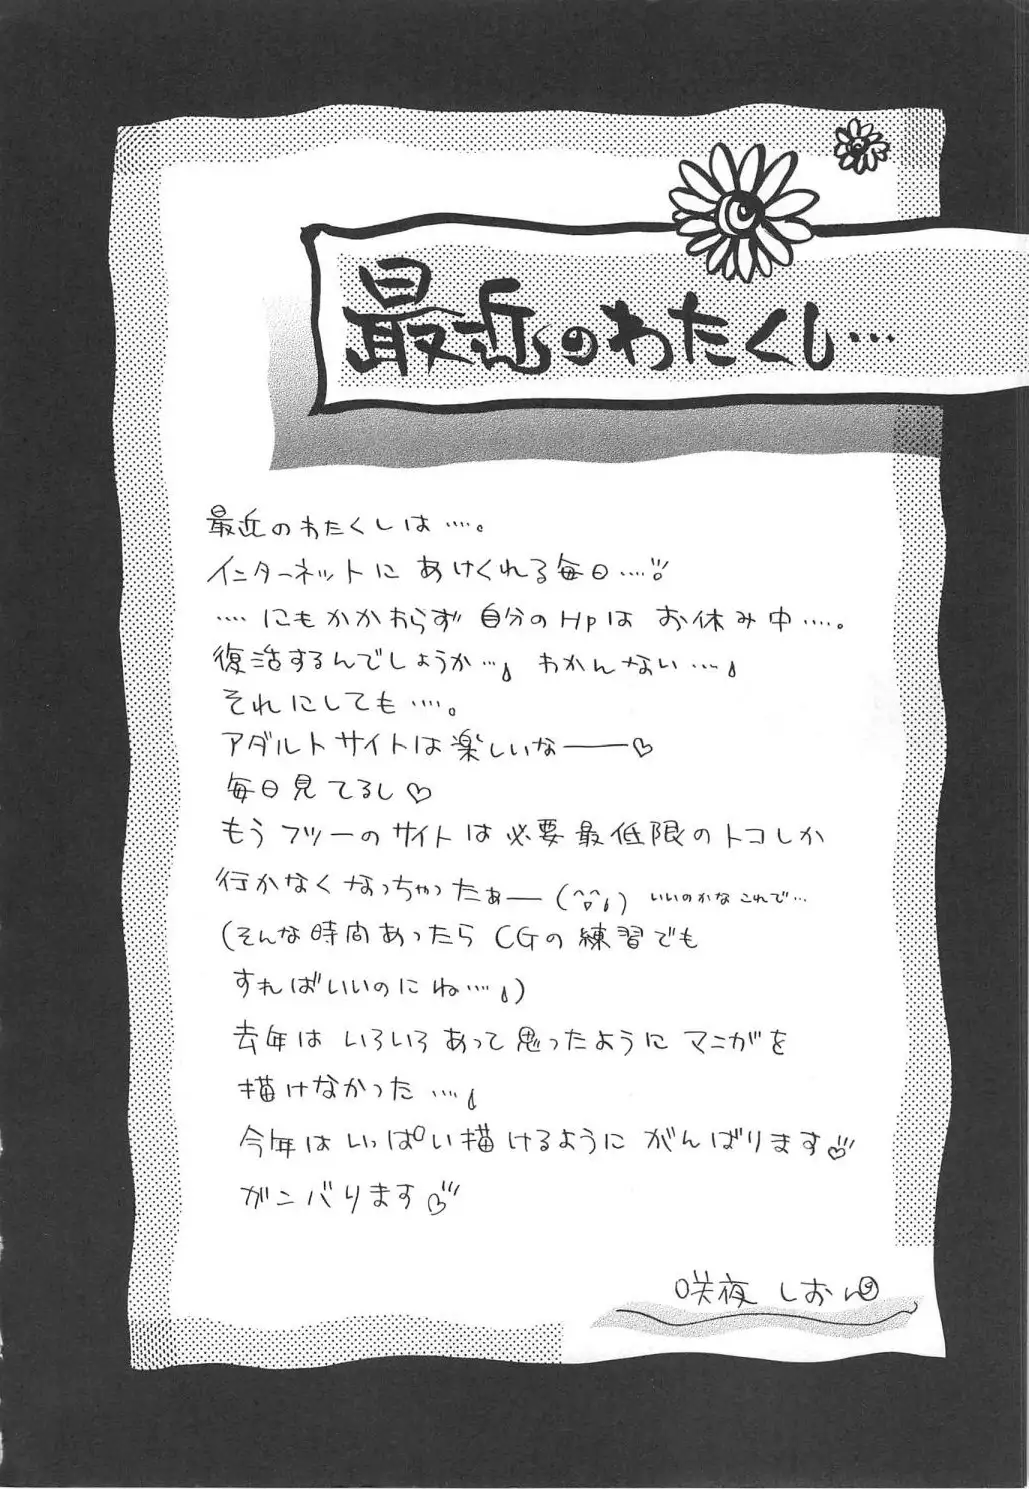 最近のわたくし…
最近のわたくしは…。
インターネットにあけくれる毎日…
…にもかかわらず 自分のHpは お休み中…。
復活するんでしょうか… わかんない…
それにしても…。
アダルトサイトは楽しいなー♡
毎日見てるし♡
もうフツーのサイトは必要最低限のトコしか
行かなくなっちゃったぁー(^^;) いいのかな これで…
(そんな時間あったら CGの練習でも
すればいいのにね…)
去年は いろいろあって思ったように マンガを
描けなかった…
今年は いっぱい描けるように がんばります♡
ガンバります♡
咲夜 しおん